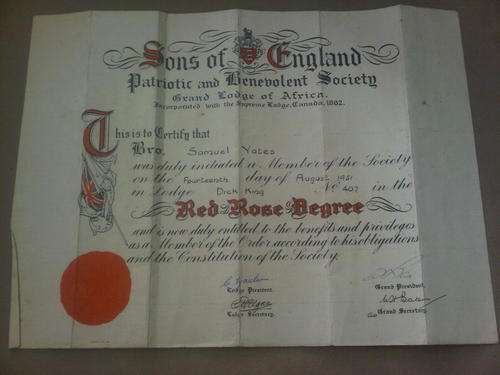 Sons of England
Patriotic and Benevolent Society
Grand Lodge of Africa.
Incorporated with the Supreme Lodge, Canada, 1882.
This is to Certify that
Bro. Samuel Yates
was duly initiated a Member of the Society
on the Fourteenth day of August 1951
in Lodge Dick King No 407 in the
Red Rose Degree
and is now duly entitled to the benefits and privileges
as a Member of the Order according to his obligations
and the Constitution of the Society.
Lodge President.
Grand President.
Lodge Secretary.
Grand Secretary.